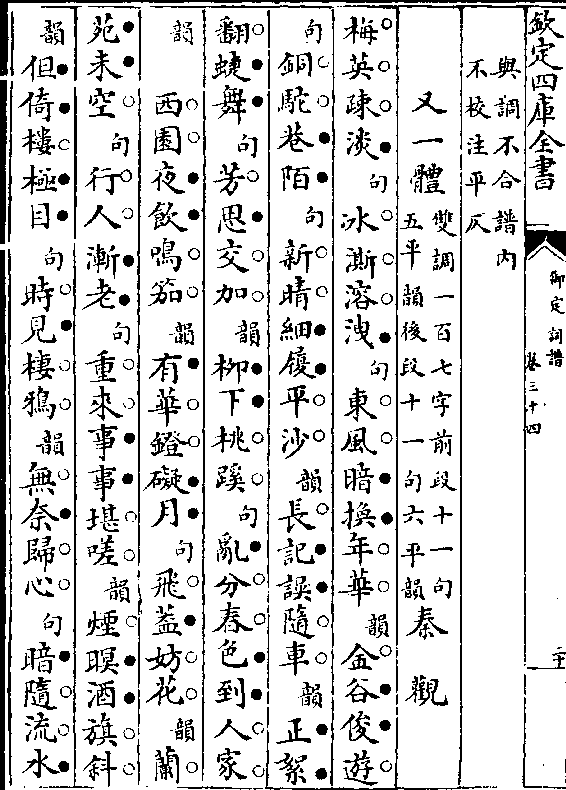 欽定四庫全書
御定詞譜
卷三十四
二十
與調不合譜内
不校注平仄
又一體 雙調一百七字前段十一句
五平韻後段十一句六平韻 秦觀
梅英疎淡句冰澌溶洩句東風暗換年華韻金谷俊遊
句銅駝巷陌句新晴細履平沙韻長記誤隨車韻正絮
翻蝶舞句芳思交加韻柳下桃蹊句亂分春色到人家
韻 西園夜飲鳴笳韻有華鐙礙月句飛蓋妨花韻蘭
苑未空句行人漸老句重來事事堪嗟韻煙暝酒旗斜
韻但倚樓極目句時見棲鴉韻無奈歸心句暗隨流水